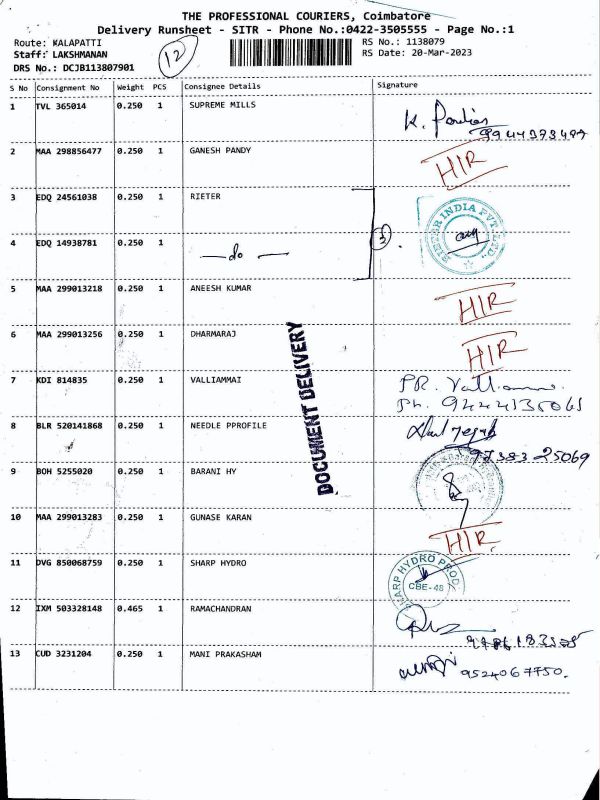 THE PROFESSIONAL COURIERS, Coimbatore
Delivery Runsheet - SITR - Phone No.:0422-3505555 - Page No.:1
Route: KALAPATTI
Staff: LAKSHMANAN
DRS No.: DCJB113807901
12
RS No.: 1138079
RS Date: 20-Mar-2023
S No Consignment No Weight PCS Consignee Details Signature
1 TVL 365014 0.250 1 SUPREME MILLS
K.
2 MAA 298856477 0.250 1 GANESH PANDY HIR
3 EDQ 24561038 0.250 1 RIETER
RIETER INDIA PVT. LTD.
4 EDQ 14938781 0.250 1 — do —
5 MAA 299013218 0.250 1 ANEESH KUMAR HIR
6 MAA 299013256 0.250 1 DHARMARAJ HIR
DOCUMENT DELIVERY
7 KDI 814835 0.250 1 VALLIAMMAI PR.
Ph. 9444135065
8 BLR 520141868 0.250 1 NEEDLE PPROFILE
97383 25069
9 BOH 5255020 0.250 1 BARANI HY
10 MAA 299013283 0.250 1 GUNASE KARAN HIR
11 DVG 850068759 0.250 1 SHARP HYDRO
SHARP HYDRO PROD
CBE-48
12 IXM 503328148 0.465 1 RAMACHANDRAN
13 CUD 3231204 0.250 1 MANI PRAKASHAM
9524067750.